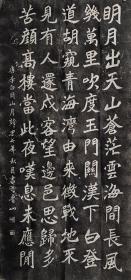 明月出天山蒼茫雲海間長風
幾萬里吹度玉門關漢下白登
道胡窺青海灣由來征戰地不
見有人還戍客望邊邑思歸多
苦顏高樓當此夜嘆息未應閑
唐李白關山月